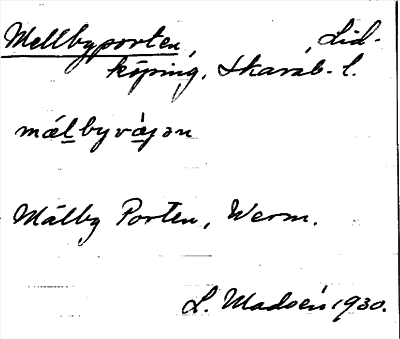 Mellbyporten, Lid-
köping, Skarab. l.
mälbyvägən
Målby Porten, Werm.
L. Madsén 1930.